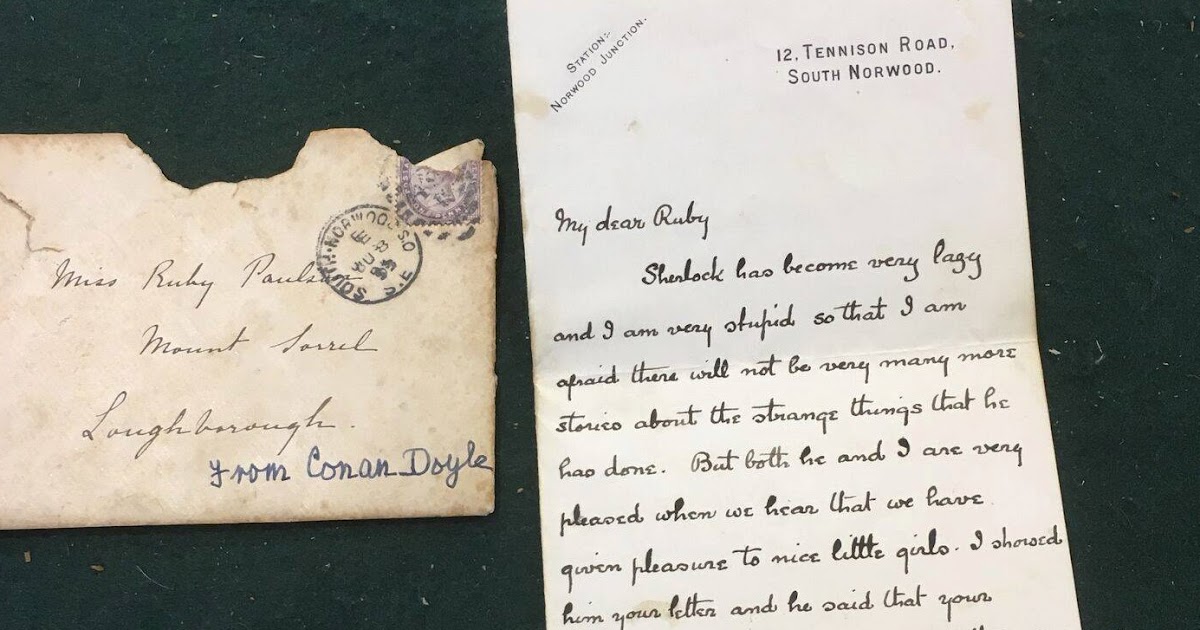 Miss Ruby
Mount Sorrel
Loughborough.
From Conan Doyle
SOUTH-NORWOOD S.O
S.E
STATION:-
NORWOOD JUNCTION.
12, TENNISON ROAD,
SOUTH NORWOOD.
My dear Ruby
Sherlock has become very lazy
and I am very stupid so that I am
afraid there will not be very many more
stories about the strange things that he
has done. But both he and I are very
pleased when we hear that we have
given pleasure to nice little girls. I showed
him your letter and he said that your